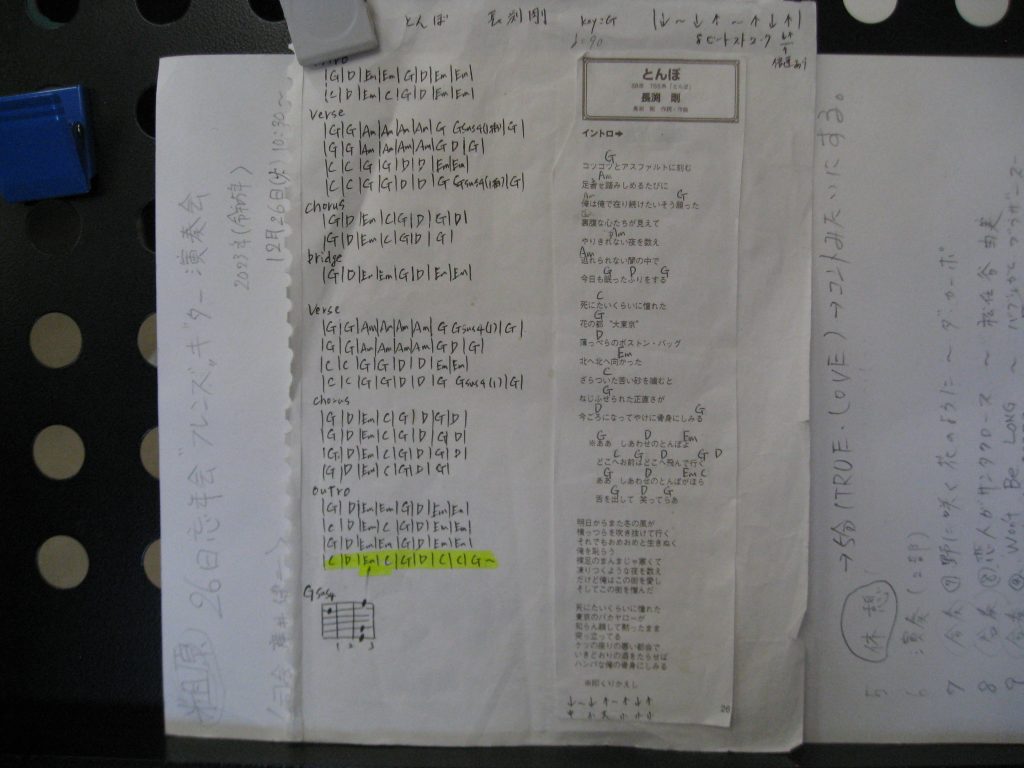 とんぼ 長渕剛 key=G |↓~↓↑~↑↓↑|
♩=90 8ビートストローク
|G|D|Em|Em|G|D|Em|Em|
|C|D|Em|C|G|D|Em|Em|
verse
|G|G|Am|Am|Am|Am|G Gsus4(1拍)|G|
|G|G|Am|Am|Am|Am|G D|G|
|C|C|G|G|D|D|Em|Em|
|C|C|G|G|D|D|G Gsus4(1拍)|G|
chorus
|G|D|Em|C|G|D|G|D|
|G|D|Em|C|G|D|G|
bridge
|G|D|Em|Em|G|D|Em|Em|
verse
|G|G|Am|Am|Am|Am|G Gsus4(1)|G|
|G|G|Am|Am|Am|Am|G D|G|
|C|C|G|G|D|D|Em|Em|
|C|C|G|G|D|D|G Gsus4(1)|G|
chorus
|G|D|Em|C|G|D|G|D|
|G|D|Em|C|G|D|G|D|
|G|D|Em|C|G|D|G|D|
|G|D|Em|C|G|D|G|
outro
|G|D|Em|Em|G|D|Em|Em|
|C|D|Em|C|G|D|Em|Em|
|G|D|Em|Em|G|D|Em|Em|
|C|D|Em|C|G|D|C|C|G~
Gsus4
1 2 3
とんぼ
長渕 剛
イントロ➔
G
コツコツとアスファルトに刻む
Am
足音を踏みしめるたびに
Am G
俺は俺で在り続けたいそう願った
G
裏腹な心たちが見えて
Am
やりきれない夜を数え
Am
逃れられない闇の中で
G D G
今日も眠ったふりをする
C
死にたいくらいに憧れた
G
花の都 “大東京”
D
薄っぺらのボストン・バッグ
Em
北へ北へ向かった
C
ざらついた苦い砂を噛むと
G
ねじふせられた正直さが
D G
今ごろになってやけに骨身にしみる
G D Em
※ああ しあわせのとんぼよ
C G D G D
どこへお前はどこへ飛んで行く
G D Em C
ああ しあわせのとんぼがほら
G D G
舌を出して 笑ってらあ
明日からまた冬の風が
横っつらを吹き抜けて行く
それでもおめおめと生きぬく
俺を恥らう
裸足のまんまじゃ寒くて
凍りつくような夜を数え
だけど俺はこの街を愛し
そしてこの街を憎んだ
死にたいくらいに憧れた
東京のバカヤローが
知らん顔して黙ったまま
突っ立ってる
ケツの座りの悪い都会で
いきどおりの酒をたらせば
ハンパな俺の骨身にしみる
※印くりかえし
↓~↓↑~↑↓↑
26
26日忘年会 フレンズギター演奏会
2023年(令和5年)
12月26日(火)10:30~
→5分(TRUE・LOVE)→コントみたいにする。
休憩
5
6 演奏(2部)
7 合奏⑦ 野に咲く花のように ~ ダ・カーポ
8 合奏⑧ 恋人がサンタクロース ~ 松任谷由実
9 合奏⑨ Won't Be LONG ~ バブルガムブラザーズ